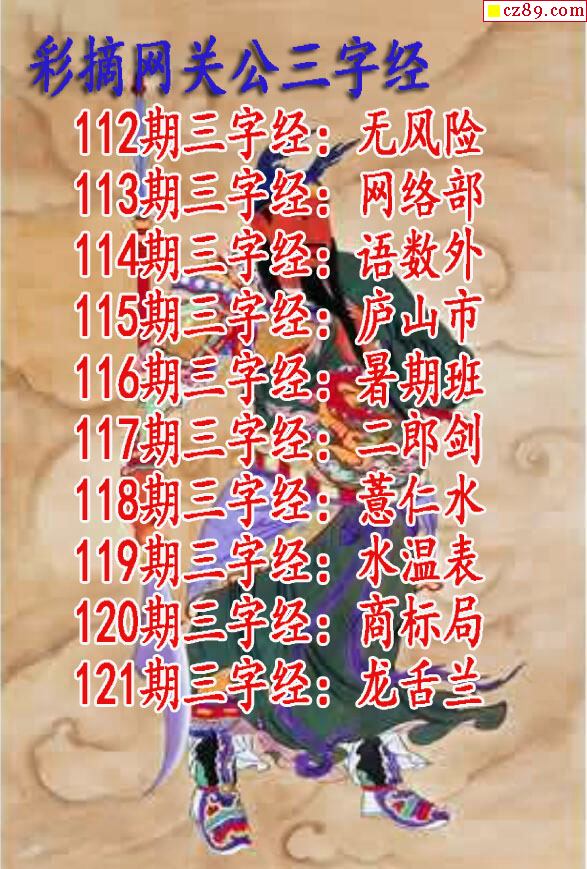 cz89.com
彩摘网关公三字经
112期三字经：无风险
113期三字经：网络部
114期三字经：语数外
115期三字经：庐山市
116期三字经：暑期班
117期三字经：二郎剑
118期三字经：薏仁水
119期三字经：水温表
120期三字经：商标局
121期三字经：龙舌兰